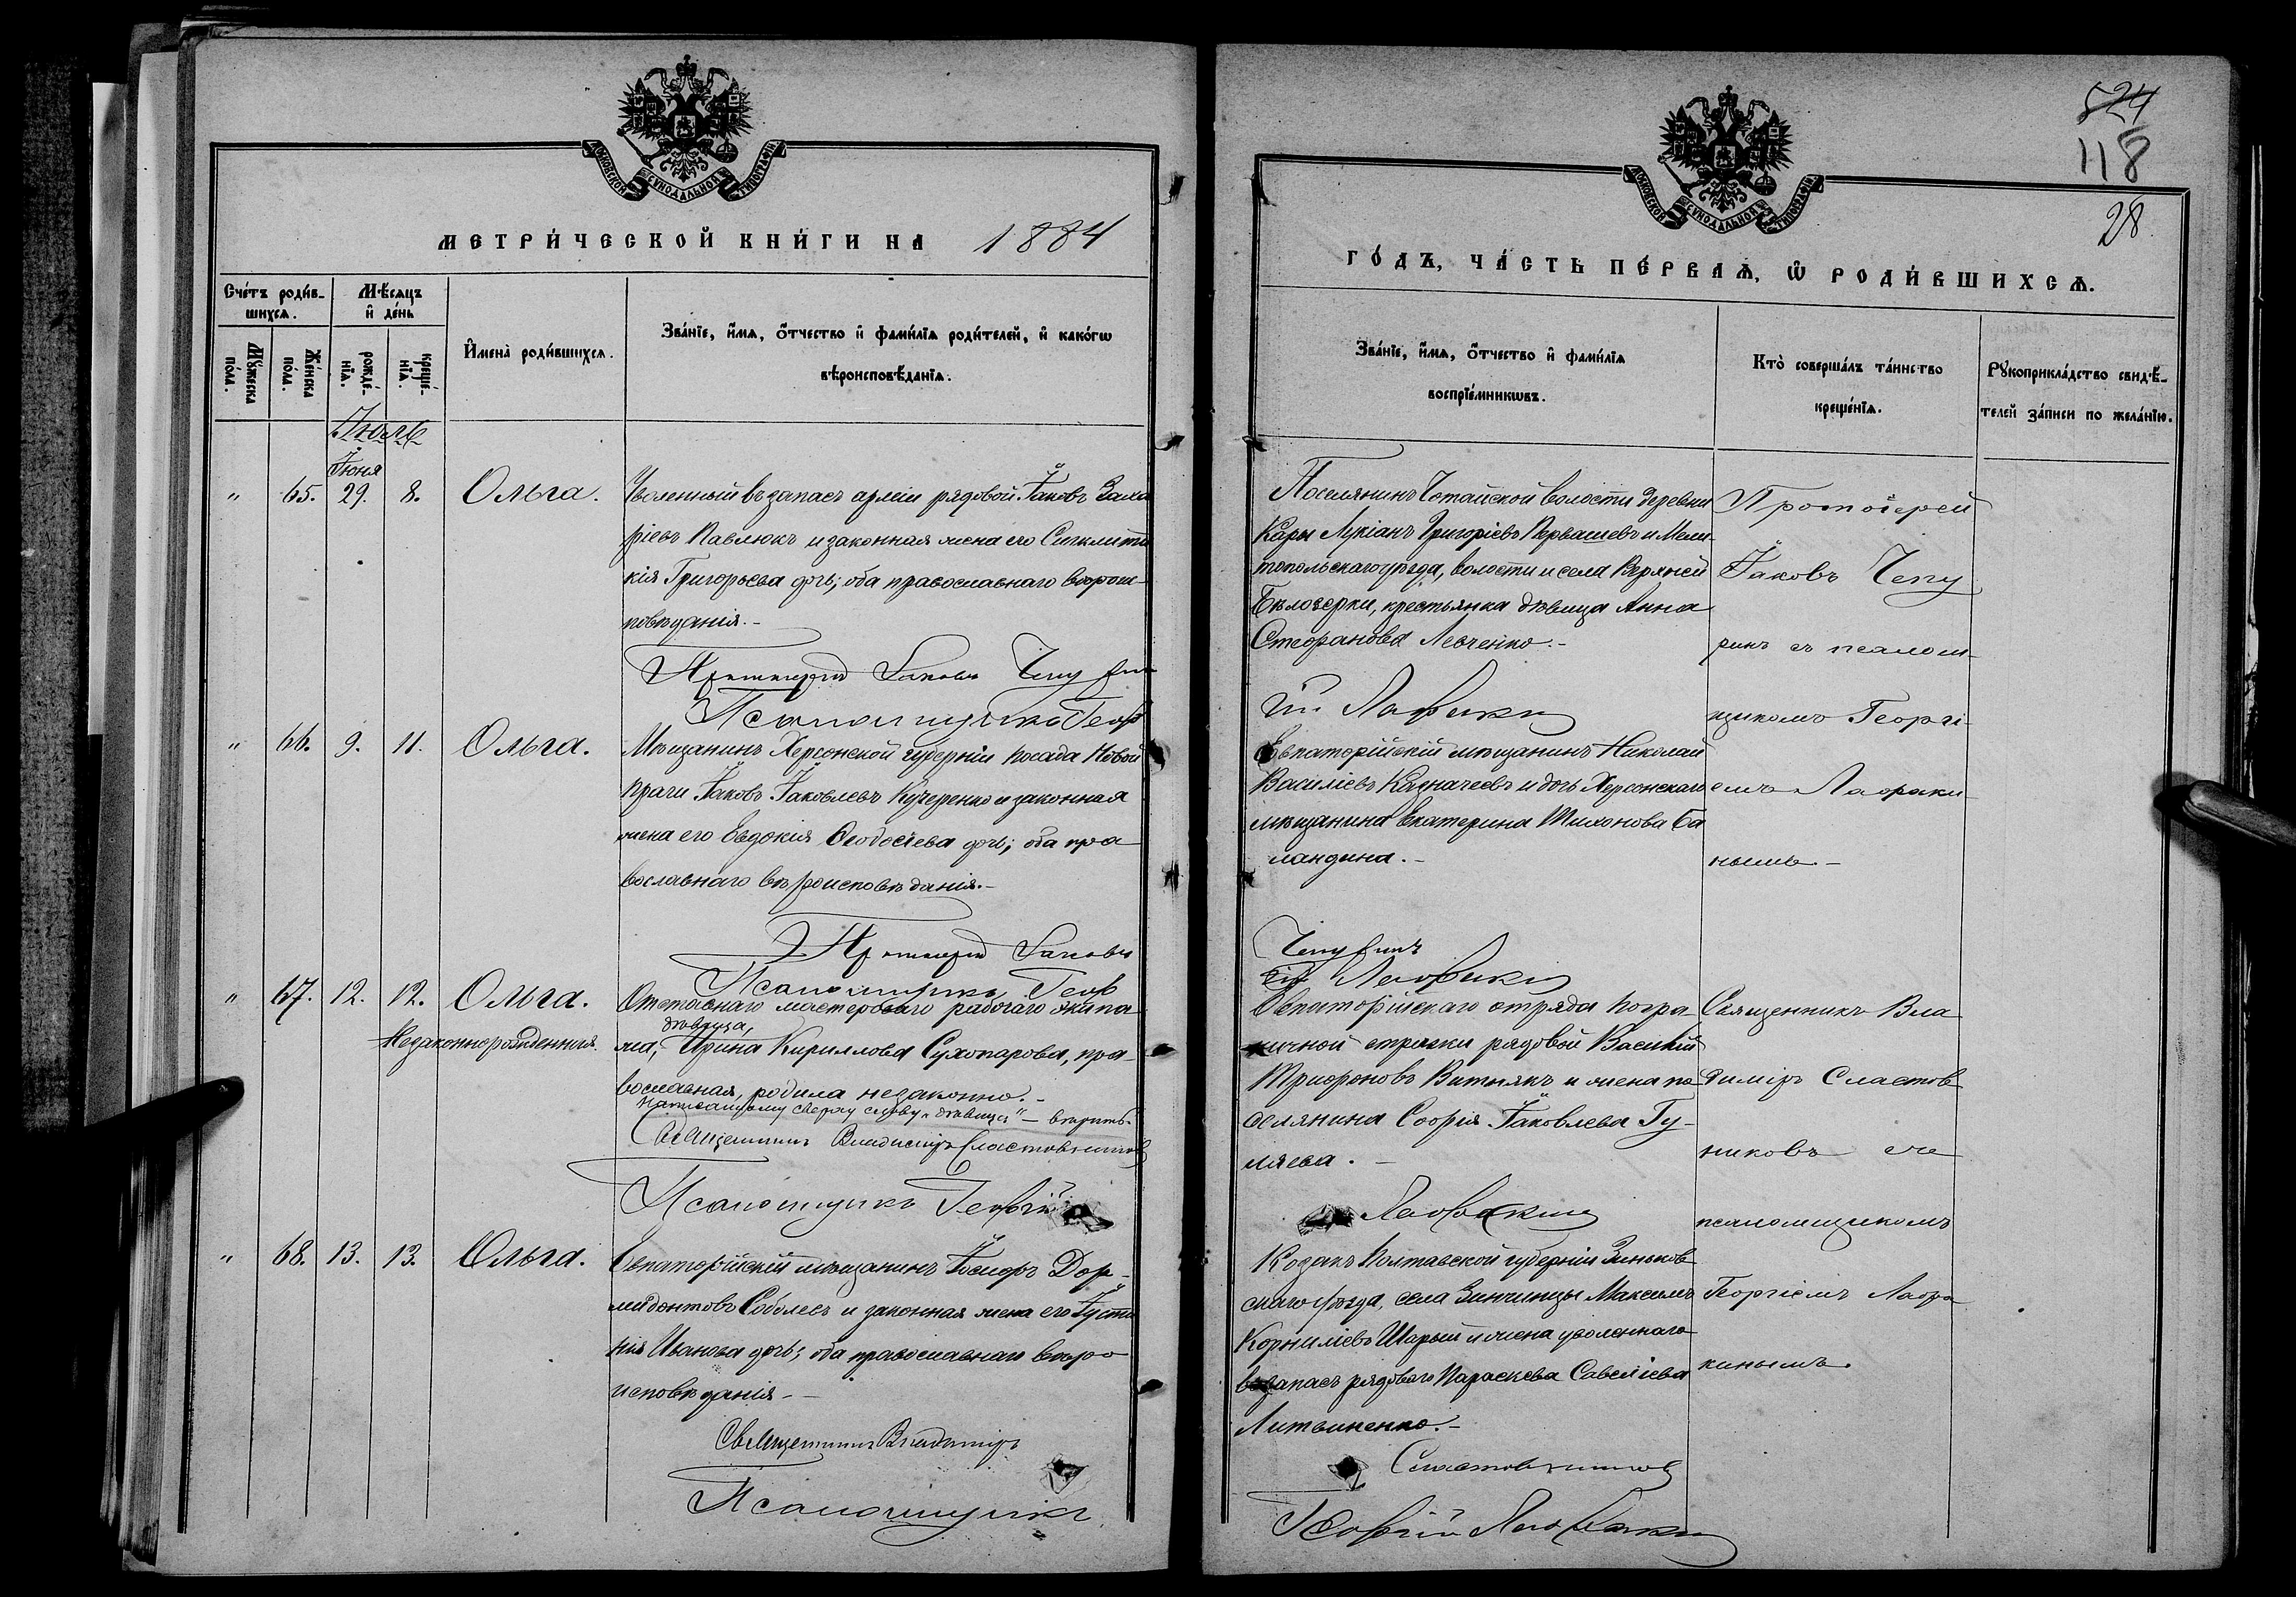 МОСКОВСКОЙ СѴНОДАЛЬНОЙ ТИПОГРАФІИ
МЕТРИ́ЧЕСКОЙ КНИ́ГИ НА 1884
Сче́тъ роди́в-
шихсѧ.
Мѣ́сѧцъ
и҆ де́нь
Мꙋ́жеска
по́ла.
Же́нска
по́ла.
рожде́-
нїѧ.
креще́-
нїѧ.
И҆мена̀ роди́вшихсѧ.
Зва́нїе, и҆́мѧ, ѻ҆́тчество и҆ фами́лїѧ роди́телей, и҆ како́гѡ
вѣроисповѣ́данїѧ.
Іюль
Іюня
" 65. 29. 8. Ольга.
Уволенный въ запасъ арміи рядовой Іаковъ Заха
ріевъ Павлюкъ и законная жена его Сигклити
кія Григорьева дочь; оба православнаго вѣроис-
повѣданія.-
Протоіерей Іаковъ Чепуринъ
Псаломщикъ Геор
" 66. 9. 11. Ольга.
Мѣщанинъ Херсонской губерніи посада Новой
Праги Іаковъ Іаковлевъ Кучеренко и законная
жена его Евдокія Ѳеодосіева дочь; оба пра
вославнаго вѣроисповѣданія.-
Протоіерей Іаковъ
Псаломщикъ Геор
" 67. 12. 12. Ольга.
Незаконнорожденная.
мастероваго рабочаго экипа
дѣвица,
жа, Ирина Кириллова Сухопарова, пра-
вославная, родила незаконно.-
Написанному сверху слову „дѣвица" - вѣрить.
Священникъ Владиміръ Сластовниковъ
Псаломщикъ Георгій
" 68. 13. 13. Ольга.
Евпаторійскій мѣщанинъ Іосифъ Дор-
мидонтовъ Соболевъ и законная жена его Іусти
нія Иванова дочь; оба православнаго вѣро
исповѣданія.-
Священникъ Владиміръ
Псаломщикъ
524
118
28
МОСКОВСКОЙ СѴНОДАЛЬНОЙ ТИПОГРАФІИ
ГО́ДЪ, ЧА́СТЬ ПЕ́РВАѦ, Ѡ҆ РОДИ́ВШИХСѦ.
Зва́нїе, и҆́мѧ, ѻ҆́тчество и҆ фами́лїѧ
воспрїе́мникѡвъ.
Кто̀ соверша́лъ та́инство
креще́нїѧ.
Рꙋкоприкла́дство свидѣ́-
телей за́писи по жела́нїю.
Поселянинъ Чотайской волости деревни
Кары Лукіанъ Григоріевъ Первашевъ и Мели-
топольскаго уѣзда, волости и села Верхней
Бѣлозерки, крестьянка дѣвица Анна
Стефанова Левченко.-
гій Лафаки
Протоіерей
Іаковъ Чепу
ринъ съ псалом-
щикомъ Георгі-
емъ Лафаки-
нымъ.-
Евпаторійскій мѣщанинъ Николай
Василіевъ Казначеевъ и дочь Херсонскаго
мѣщанина Екатерина Тихонова Ба
ландина.-
Чепуринъ
гій Лафаки
Евпаторійскаго отряда погра-
ничной стражи рядовой Василій
Трифоновъ Витнякъ и жена по
селянина Софія Іаковлева Гу-
ляева.-
Лафакин
Священникъ Вла
диміръ Сластов
никовъ съ
псаломщикомъ
Георгіемъ Лафа
кинымъ.
Козакъ Полтавской губерніи Зиньков
скаго уѣзда, села Зинчинцы Максимъ
Корниліевъ Шарый и жена уволеннаго
въ запасъ рядоваго Параскева Савеліева
Литвиненко.-
Сластовниковъ
Георгій Лафаки